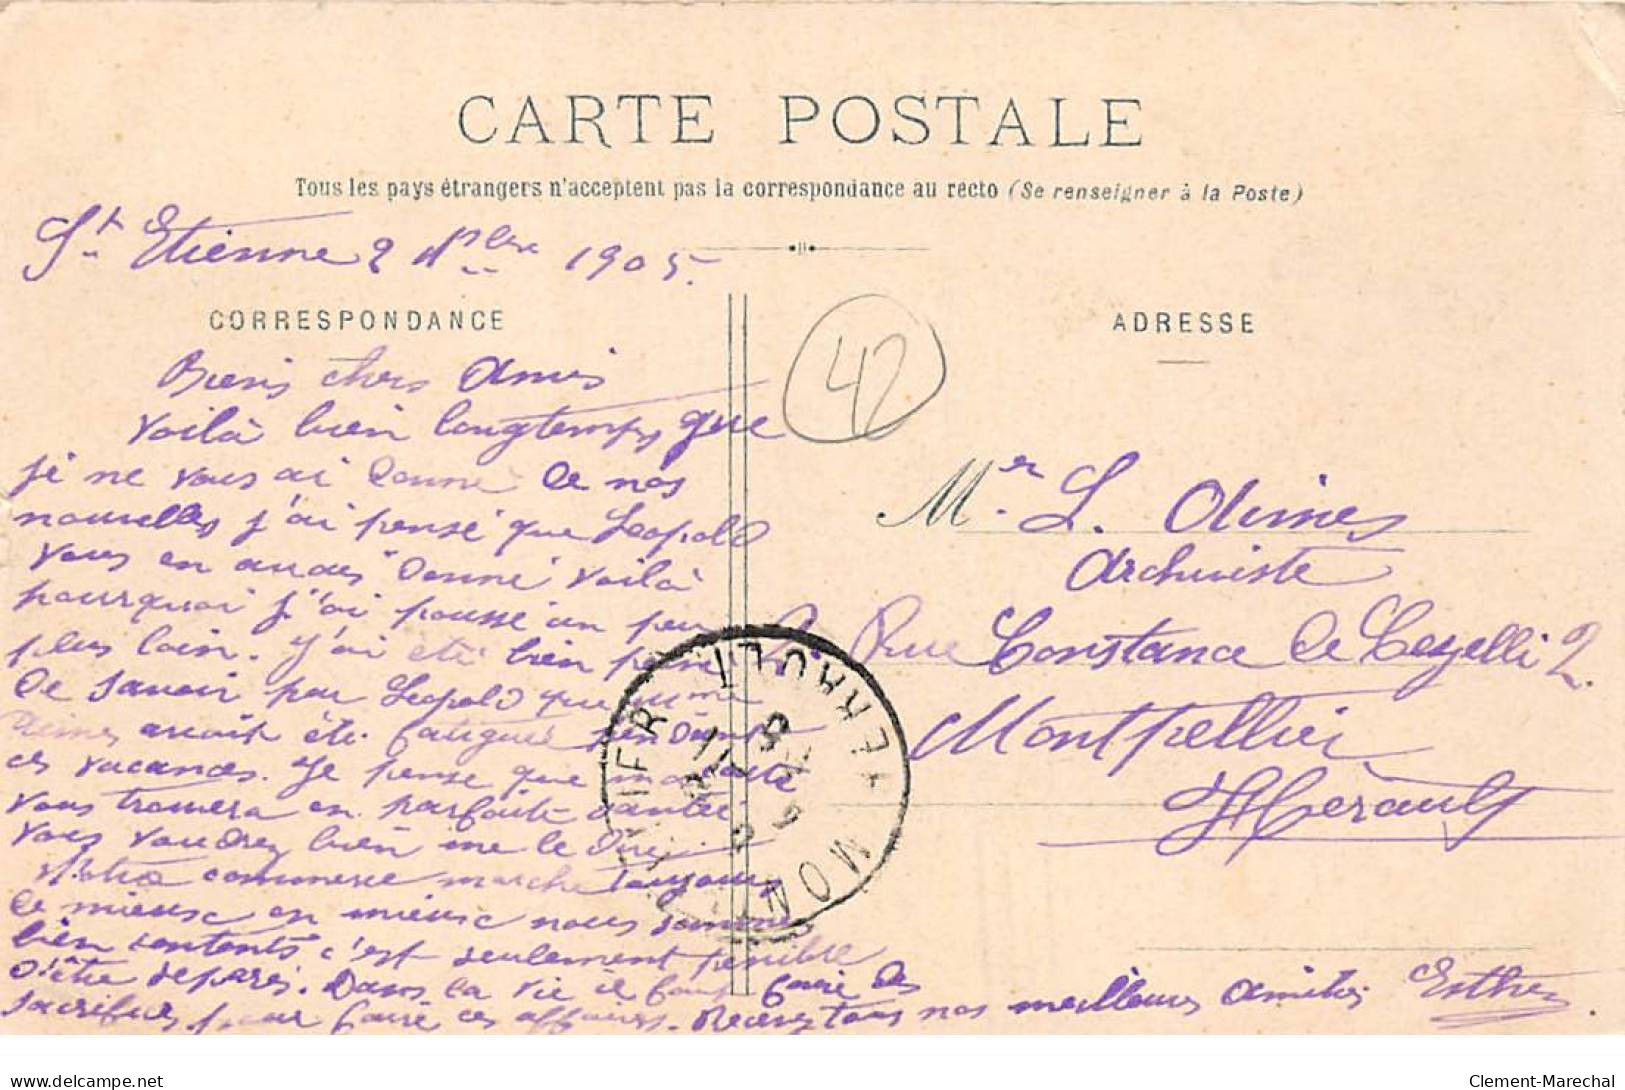 CARTE POSTALE
Tous les pays étrangers n'acceptent pas la correspondance au recto (Se renseigner à la Poste)
St. Etienne 2 9bre 1905.
CORRESPONDANCE
ADRESSE
42
Biens chers Amis
Voilà bien longtemps que
je ne vous ai donné de nos
nouvelles j'ai pensé que Leopold
vous en avais donné voilà
pourquoi j'ai poussé un peu
plus loin. J'ai eté bien peiné
de savoir par Leopold que
avait été fatigué pendant
ces vacances. Je pense que ma carte
vous trouvera en parfaite santé
vous voudrez bien me le dire
Notre commerce marche toujours
de mieux en mieux nous sommes
bien contents c'est seulement penible
d'être separés. Dans la vie il faut faire des
sacrifices pour faire ces affaires. Recevez tous nos meilleures amitiés Esther
Mr. L. Aimes
Archiviste
2. Rue Constance de Cezelli 2.
Montpellier
Herault
MONTPELLIER
HERAULT
delcampe.net
Clement-Marechal